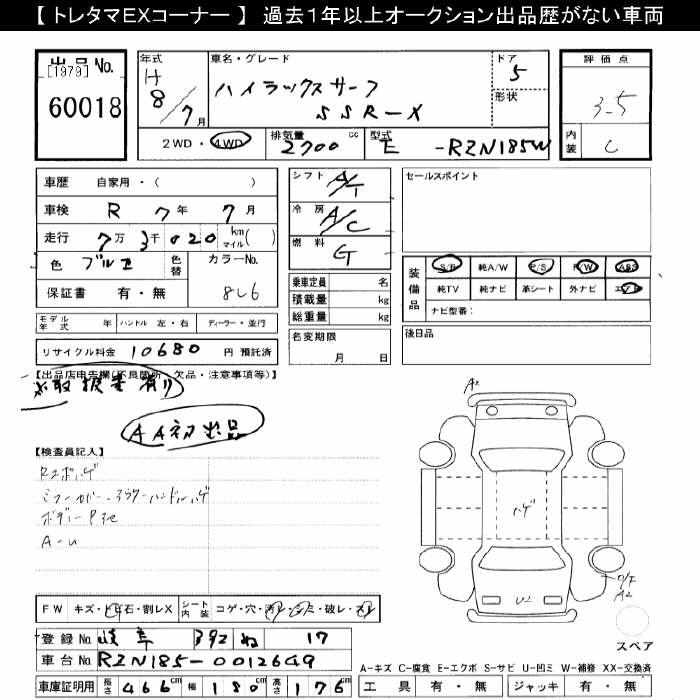 【 トレタマEXコーナー 】 過去1年以上オークション出品歴がない車両
出品 No.
[1979]
60018
年式 H 8/7月
車名・グレード
ハイラックスサーフ
SSR-X
ドア 5
形状
評価点
3.5
内装 C
2WD・4WD
排気量 2700 cc
型式 E -RZN185W
車歴 自家用・( )
車検 R 7年 7月
走行 7万 3千 020 km マイル( )
色
色替
カラーNo.
8L6
保証書 有・無
シフト A/T
冷房 A/C
燃料 G
セールスポイント
乗車定員 名
積載量 kg
総重量 kg
装備品
S/R 純A/W P/S P/W ABS
純TV 純ナビ 革シート 外ナビ エアB
ナビ型番:
モデル年式 年 ハンドル 左・右 ディーラー・並行
名変期限
月 日
後日品
リサイクル料金 10680 円 預託済
【出品店申告欄(不良箇所・欠品・注意事項等)】
取扱書有り
AA初出品
【検査員記入】
A-U
A2
ハゲ
U2
A2
スペア
FW キズ・トビ石・割レX
シート内装 コゲ・穴・破レ・スレ
登録No. 岐阜 ね 17
車台No. RZN185-0012649
車庫証明用 長さ 466cm 幅 180cm 高さ 176cm
A-キズ C-腐食 E-エクボ S-サビ U-凹ミ W-補修 XX-交換済
工具 有・無 ジャッキ 有・無